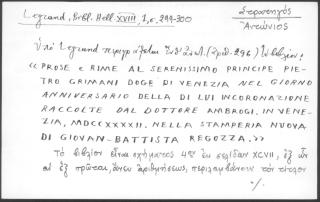 Legrand, Bibl. Hell. XVIII 1, σ. 299-300
Στρατηγός
Ἀντώνιος
Ὑπὸ Legrand περιγράφεται ἐνθ' ἀνωτ. (ἀριθ. 296) τὸ βιβλίον:
«PROSE E RIME AL SERENISSIMO PRINCIPE PIE-
TRO GRIMANI DOGE DI VENEZIA NEL GIORNO
ANNIVERSARIO DELLA DI LUI INCORONAZIONE
RACCOLTE DAL DOTTORE AMBROGI. IN VENE-
ZIA, MDCCXXXXII. NELLA STAMPERIA NUOVA
DI GIOVAN-BATTISTA REGOZZA.»
Τὸ βιβλίον εἶναι σχήματος 4ου ἐκ σελίδων XCVII, ἐξ ὧν
αἱ ἓξ πρῶται, ἄνευ ἀριθμήσεως, περιλαμβάνουν τὸν τίτλον
·/.